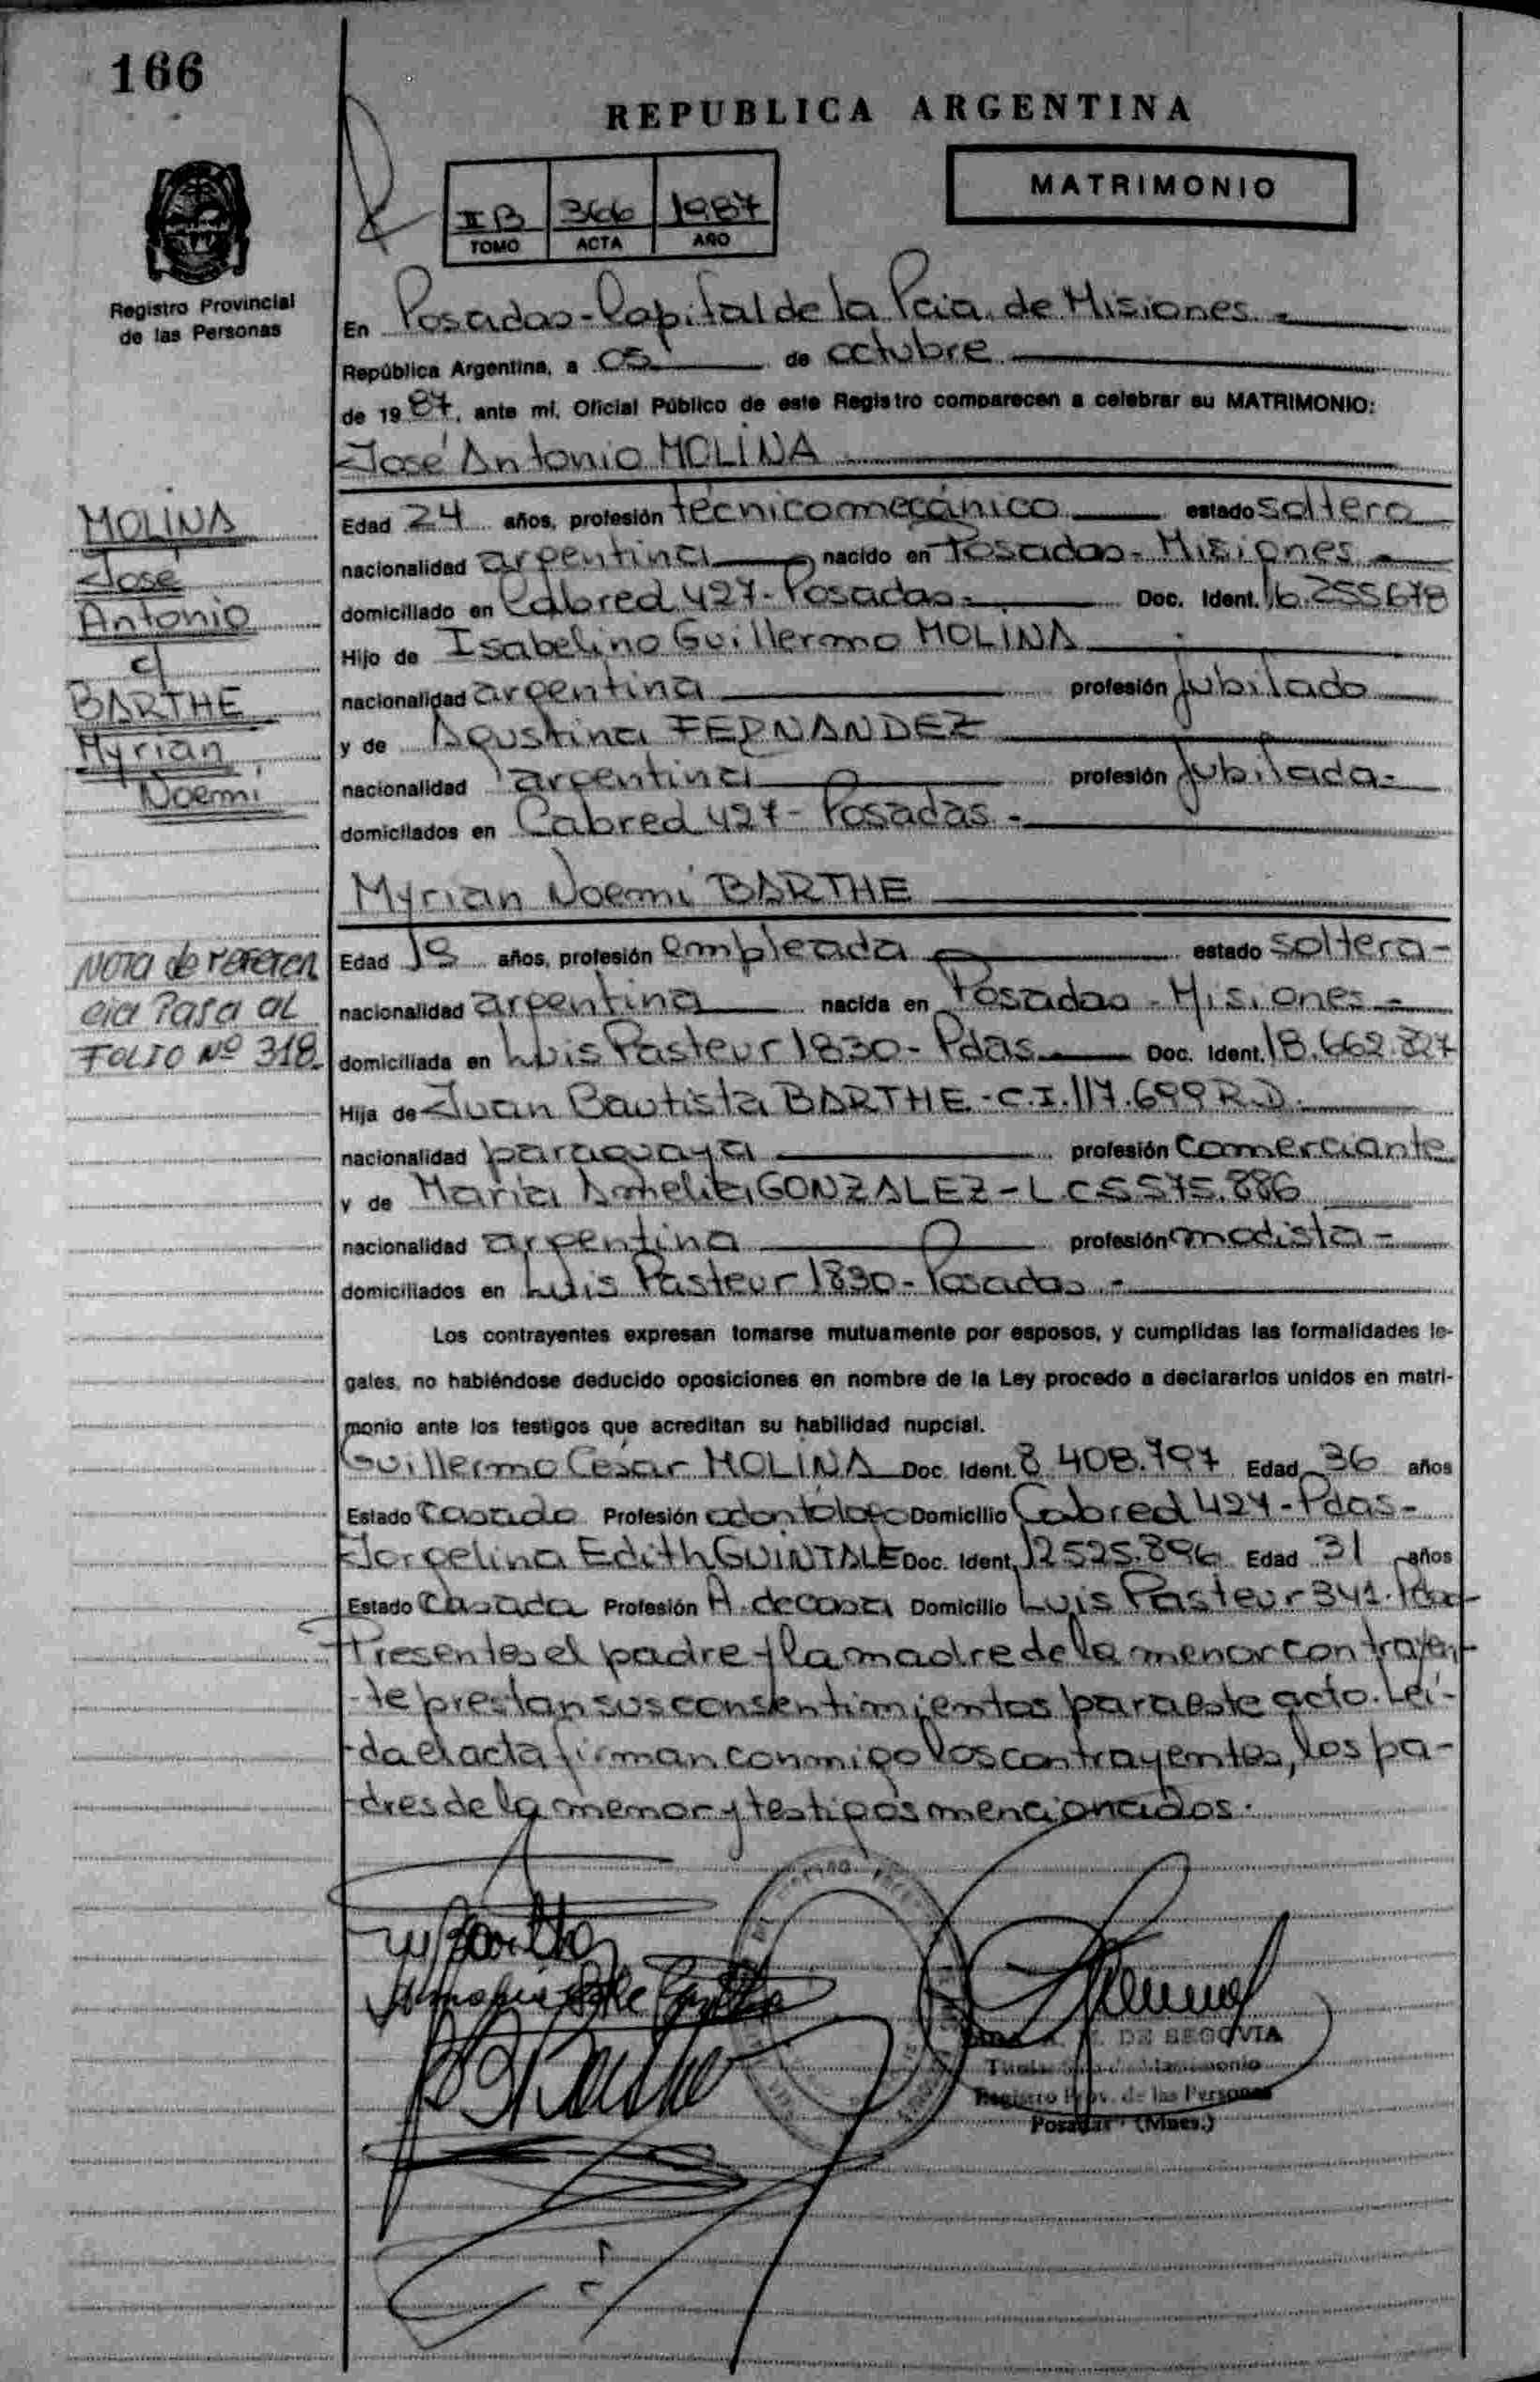 166
REPUBLICA ARGENTINA
MATRIMONIO
II B 366 1987
TOMO ACTA AÑO
Registro Provincial
de las Personas
En Posadas - Capital de la Pcia. de Misiones.-
República Argentina, a 05 de octubre
de 1987, ante mí, Oficial Público de este Registro comparecen a celebrar su MATRIMONIO:
José Antonio MOLINA
MOLINA
José
Antonio
c/
BARTHE
Myrian
Noemi
Edad 24 años, profesión técnico mecánico estado soltero
nacionalidad argentina nacido en Posadas - Misiones.-
domiciliado en Cabred 427 - Posadas.- Doc. Ident. 16.255678
Hijo de Isabelino Guillermo MOLINA
nacionalidad argentina profesión jubilado
y de Agustina FERNANDEZ
nacionalidad argentina profesión jubilada-
domiciliados en Cabred 427 - Posadas.-
Myrian Noemi BARTHE
NOTA de referen
cia Pasa al
FOLIO Nº 318.
Edad años, profesión empleada estado soltera-
nacionalidad argentina nacida en Posadas - Misiones.-
domiciliada en Luis Pasteur 1830 - Pdas. Doc. Ident. 18.662.827
Hija de Juan Bautista BARTHE - C.I. 117.699 R.D.
nacionalidad paraguaya profesión comerciante
y de Maria Amelia GONZALEZ - L.C 5.575.886
nacionalidad argentina profesión modista-
domiciliados en Luis Pasteur 1830 - Posadas.-
Los contrayentes expresan tomarse mutuamente por esposos, y cumplidas las formalidades le-
gales, no habiéndose deducido oposiciones en nombre de la Ley procedo a declararlos unidos en matri-
monio ante los testigos que acreditan su habilidad nupcial.
Guillermo César MOLINA Doc. Ident. 8.408.797 Edad 36 años
Estado casado Profesión odontólogo Domicilio Cabred 427 - Pdas-
Jorgelina Edith GUINTALE Doc. Ident. 12525.896 Edad 31 años
Estado casada Profesión A. de casa Domicilio Luis Pasteur 341.
Presentes el padre y la madre de la menor contrayen-
-te prestan sus consentimientos para este acto. Leí-
-da el acta firman conmigo los contrayentes, los pa-
-dres de la menor y testigos mencionados.
DE SEGOVIA
Registro Prov. de las Personas
Posadas (Mnes.)